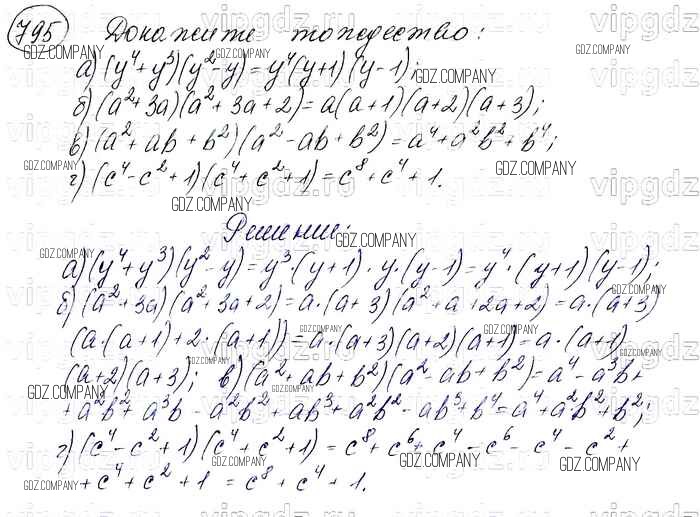 795 Докажите тождество:
а) (y⁴+y³)(y²-y)=y⁴(y+1)(y-1);
б) (a²+3a)(a²+3a+2)=a(a+1)(a+2)(a+3);
в) (a²+ab+b²)(a²-ab+b²)=a⁴+a²b²+b⁴;
г) (c⁴-c²+1)(c⁴+c²+1)=c⁸+c⁴+1.
Решение:
а) (y⁴+y³)(y²-y)=y³·(y+1)·y·(y-1)=y⁴·(y+1)(y-1);
б) (a²+3a)(a²+3a+2)=a·(a+3)(a²+a+2a+2)=a·(a+3)
(a·(a+1)+2·(a+1))=a·(a+3)(a+2)(a+1)=a·(a+1)
(a+2)(a+3); в) (a²+ab+b²)(a²-ab+b²)=a⁴-a³b+
+a²b²+a³b-a²b²+ab³+a²b²-ab³+b⁴=a⁴+a²b²+b²;
г) (c⁴-c²+1)(c⁴+c²+1)=c⁸+c⁶+c⁴-c⁶-c⁴-c²+
+c⁴+c²+1=c⁸+c⁴+1.